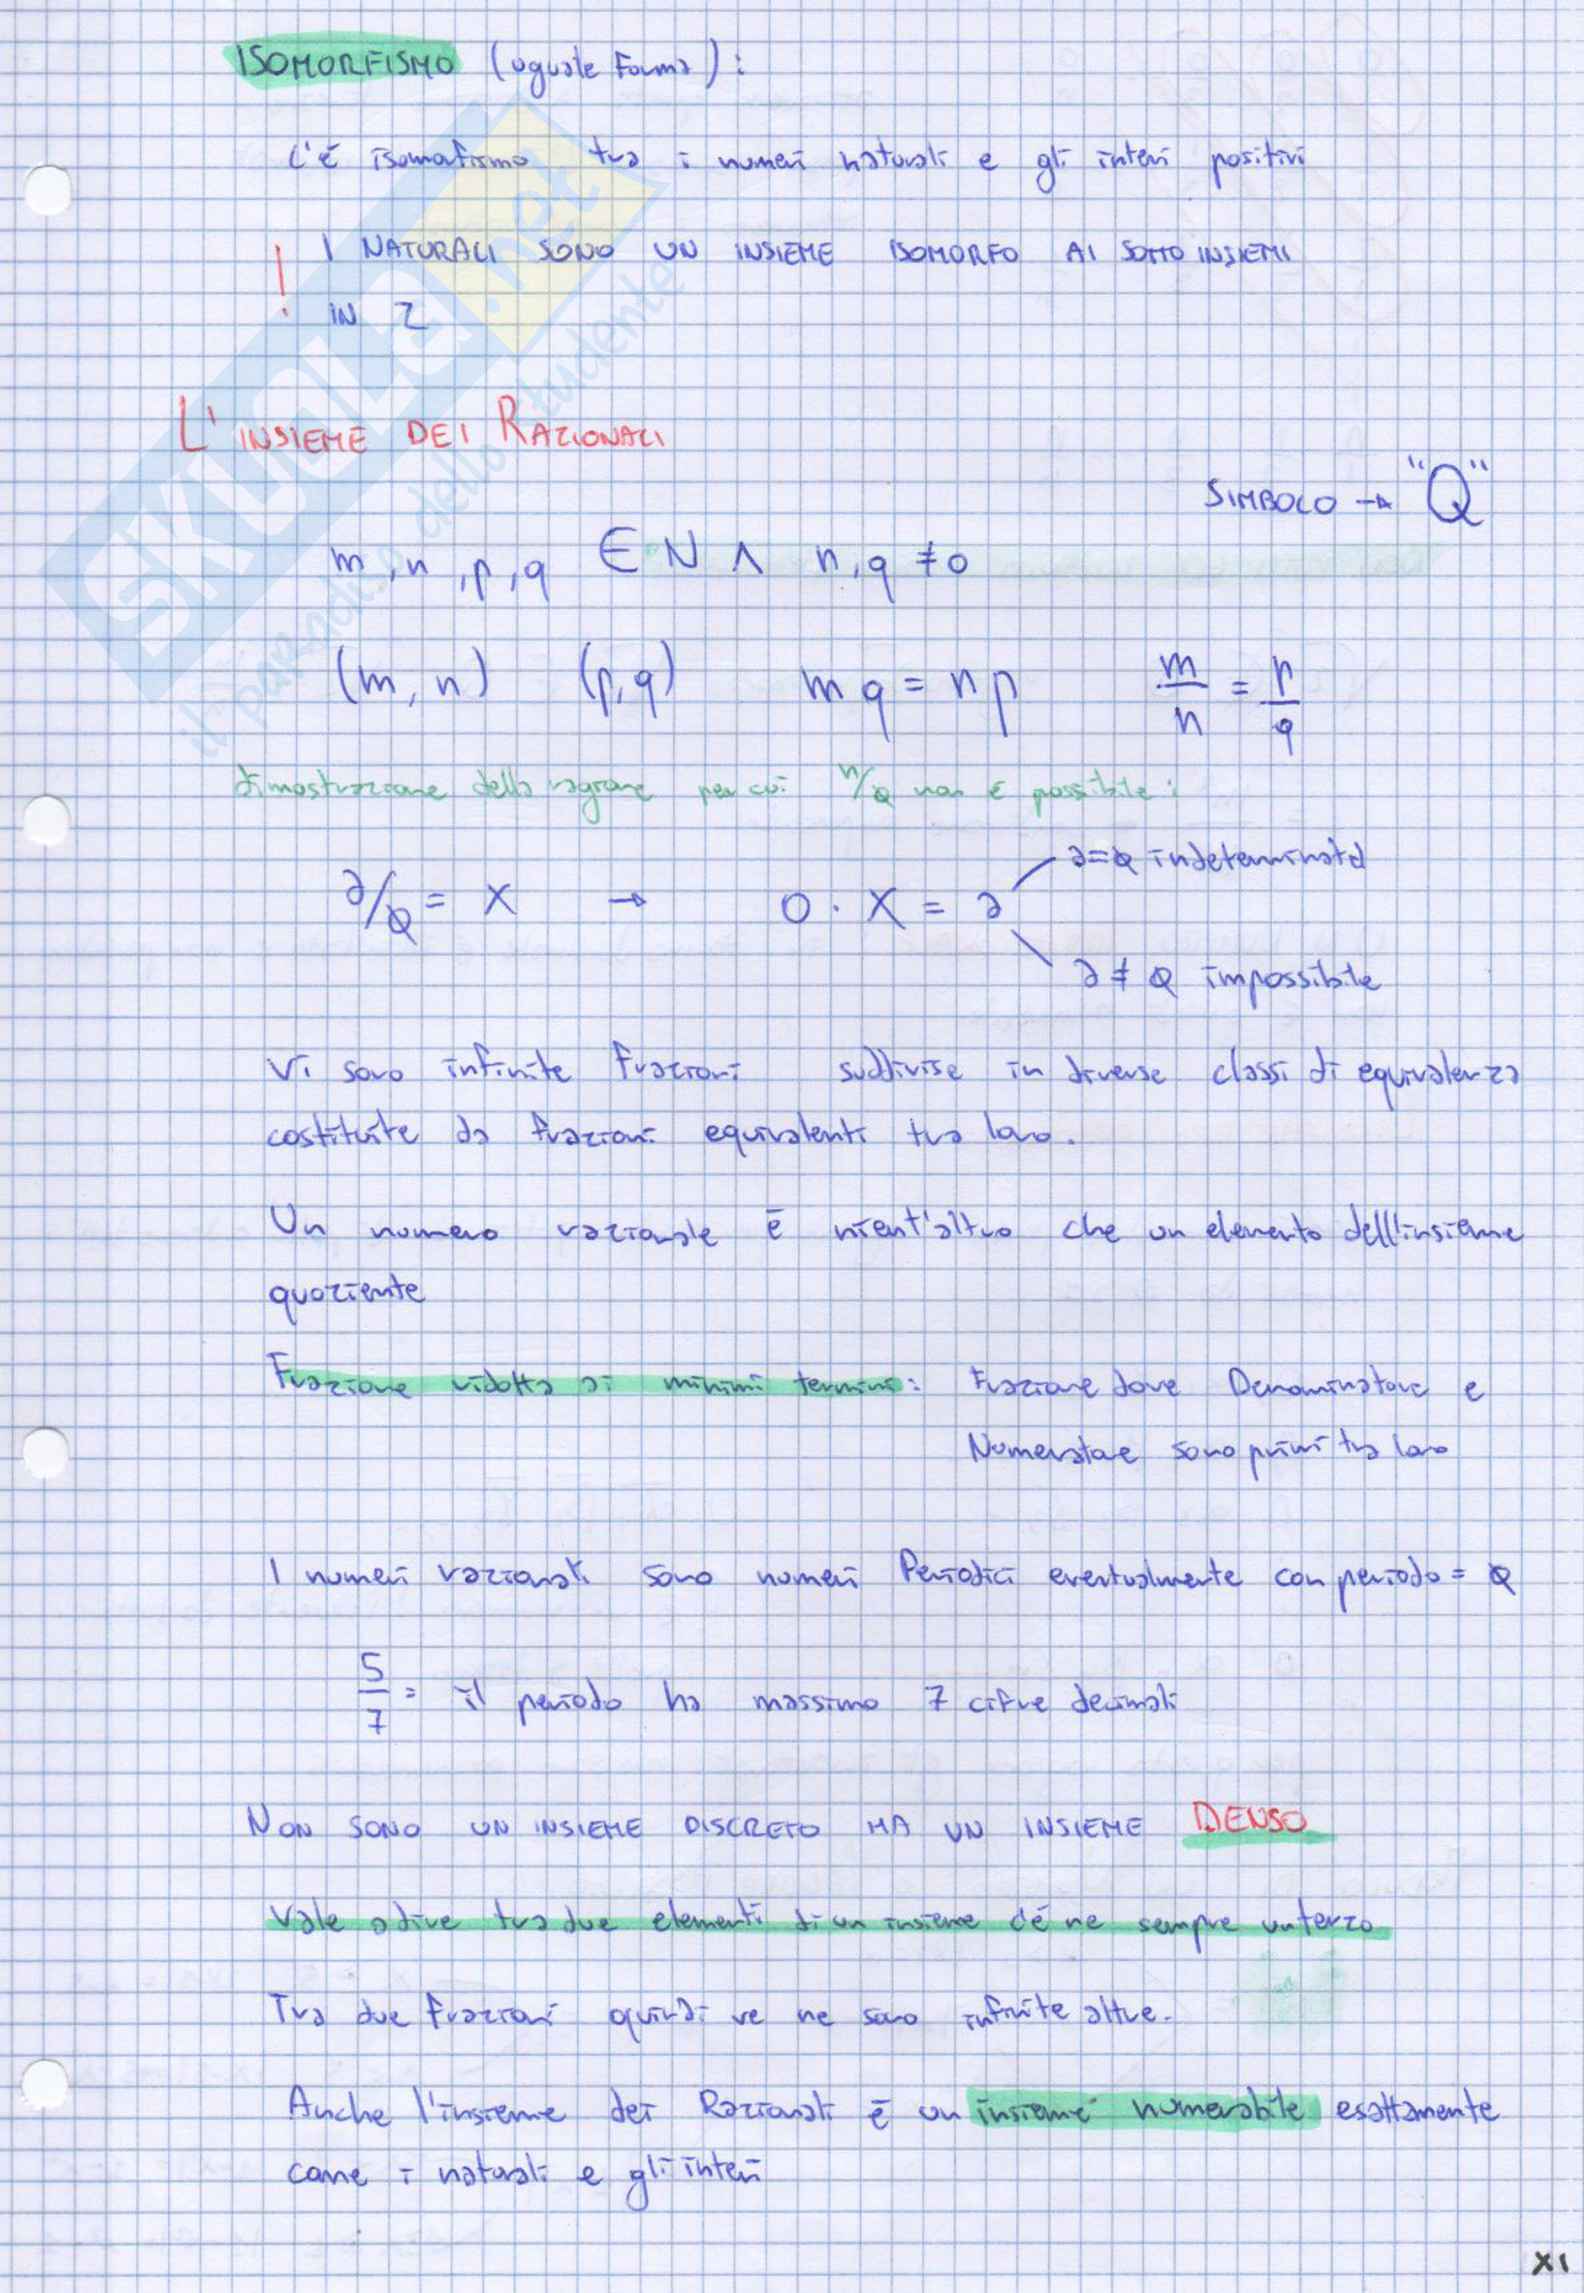 ISOMORFISMO (uguale forma):
C'é isomorfismo tra i numeri naturali e gli interi positivi
! I NATURALI SONO UN INSIEME ISOMORFO AI SOTTO INSIEMI
IN Z
L'INSIEME DEI RAZIONALI
SIMBOLO → "Q"
m, n, p, q ∈ N ∧ n, q ≠ 0
(m, n) (p, q) m q = n p m/n = p/q
dimostrazione della ragione per cui n/0 non é possibile:
a=0 indeterminata
a/0 = x → 0 · x = a
a ≠ 0 impossibile
Vi sono infinite frazioni suddivise in diverse classi di equivalenza
costituite da frazioni equivalenti tra loro.
Un numero razionale é nient'altro che un elemento dell'insieme
quoziente
Frazione ridotta ai minimi termini: Frazione dove Denominatore e
Numeratore sono primi tra loro
I numeri razionali sono numeri Periodici eventualmente con periodo = 0
5/7 = il periodo ha massimo 7 cifre decimali
NON SONO UN INSIEME DISCRETO MA UN INSIEME DENSO
Vale a dire tra due elementi di un insieme c'é ne sempre un terzo
Tra due frazioni quindi ve ne sono infinite altre.
Anche l'insieme dei Razionali é un insieme numerabile esattamente
come i naturali e gli interi
XI
SKUOLA.net
il paradiso dello studente